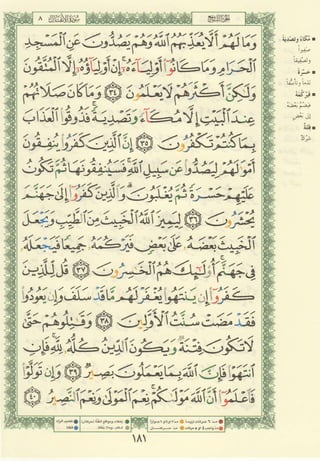 سورة الأنفال ٨
وَمَا لَهُمْ أَلَّا يُعَذِّبَهُمُ اللَّهُ وَهُمْ يَصُدُّونَ عَنِ الْمَسْجِدِ
الْحَرَامِ وَمَا كَانُوا أَوْلِيَاءَهُ إِنْ أَوْلِيَاؤُهُ إِلَّا الْمُتَّقُونَ
وَلَكِنَّ أَكْثَرَهُمْ لَا يَعْلَمُونَ ٣٤ وَمَا كَانَ صَلَاتُهُمْ
عِنْدَ الْبَيْتِ إِلَّا مُكَاءً وَتَصْدِيَةً فَذُوقُوا الْعَذَابَ
بِمَا كُنْتُمْ تَكْفُرُونَ ٣٥ إِنَّ الَّذِينَ كَفَرُوا يُنْفِقُونَ
أَمْوَالَهُمْ لِيَصُدُّوا عَنْ سَبِيلِ اللَّهِ فَسَيُنْفِقُونَهَا ثُمَّ تَكُونُ
عَلَيْهِمْ حَسْرَةً ثُمَّ يُغْلَبُونَ وَالَّذِينَ كَفَرُوا إِلَى جَهَنَّمَ
يُحْشَرُونَ ٣٦ لِيَمِيزَ اللَّهُ الْخَبِيثَ مِنَ الطَّيِّبِ وَيَجْعَلَ
الْخَبِيثَ بَعْضَهُ عَلَى بَعْضٍ فَيَرْكُمَهُ جَمِيعًا فَيَجْعَلَهُ
فِي جَهَنَّمَ أُولَئِكَ هُمُ الْخَاسِرُونَ ٣٧ قُلْ لِلَّذِينَ
كَفَرُوا إِنْ يَنْتَهُوا يُغْفَرْ لَهُمْ مَا قَدْ سَلَفَ وَإِنْ يَعُودُوا
فَقَدْ مَضَتْ سُنَّتُ الْأَوَّلِينَ ٣٨ وَقَاتِلُوهُمْ حَتَّى
لَا تَكُونَ فِتْنَةٌ وَيَكُونَ الدِّينُ كُلُّهُ لِلَّهِ فَإِنِ
انْتَهَوْا فَإِنَّ اللَّهَ بِمَا يَعْمَلُونَ بَصِيرٌ ٣٩ وَإِنْ تَوَلَّوْا
فَاعْلَمُوا أَنَّ اللَّهَ مَوْلَاكُمْ نِعْمَ الْمَوْلَى وَنِعْمَ النَّصِيرُ ٤٠
١٨١